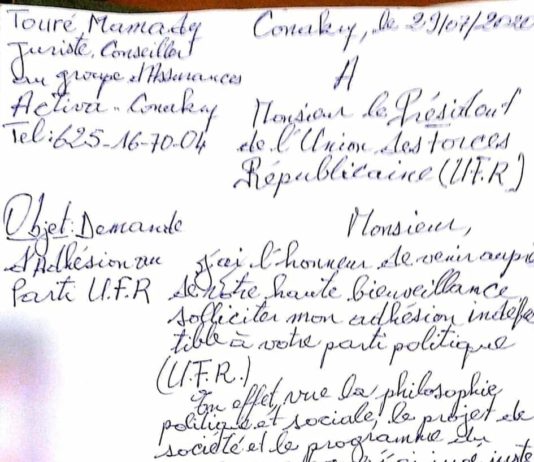 Touré, Mamady
Conakry, le 29/07/2020
Juriste, Conseiller
au groupe d'Assurances
Activa - Conakry
Tel: 625-16-70-04
A
Monsieur le Président
de l'Union des Forces
Républicaine (U.F.R)
Objet: Demande
d'Adhésion au
Parti U.F.R
Monsieur,
j'ai l'honneur de venir
de votre haute bienveillance,
solliciter mon adhésion
tible à votre parti politique
(U.F.R.)
En effet, vue la philosophie
politique et sociale, le projet de
société et le programme du